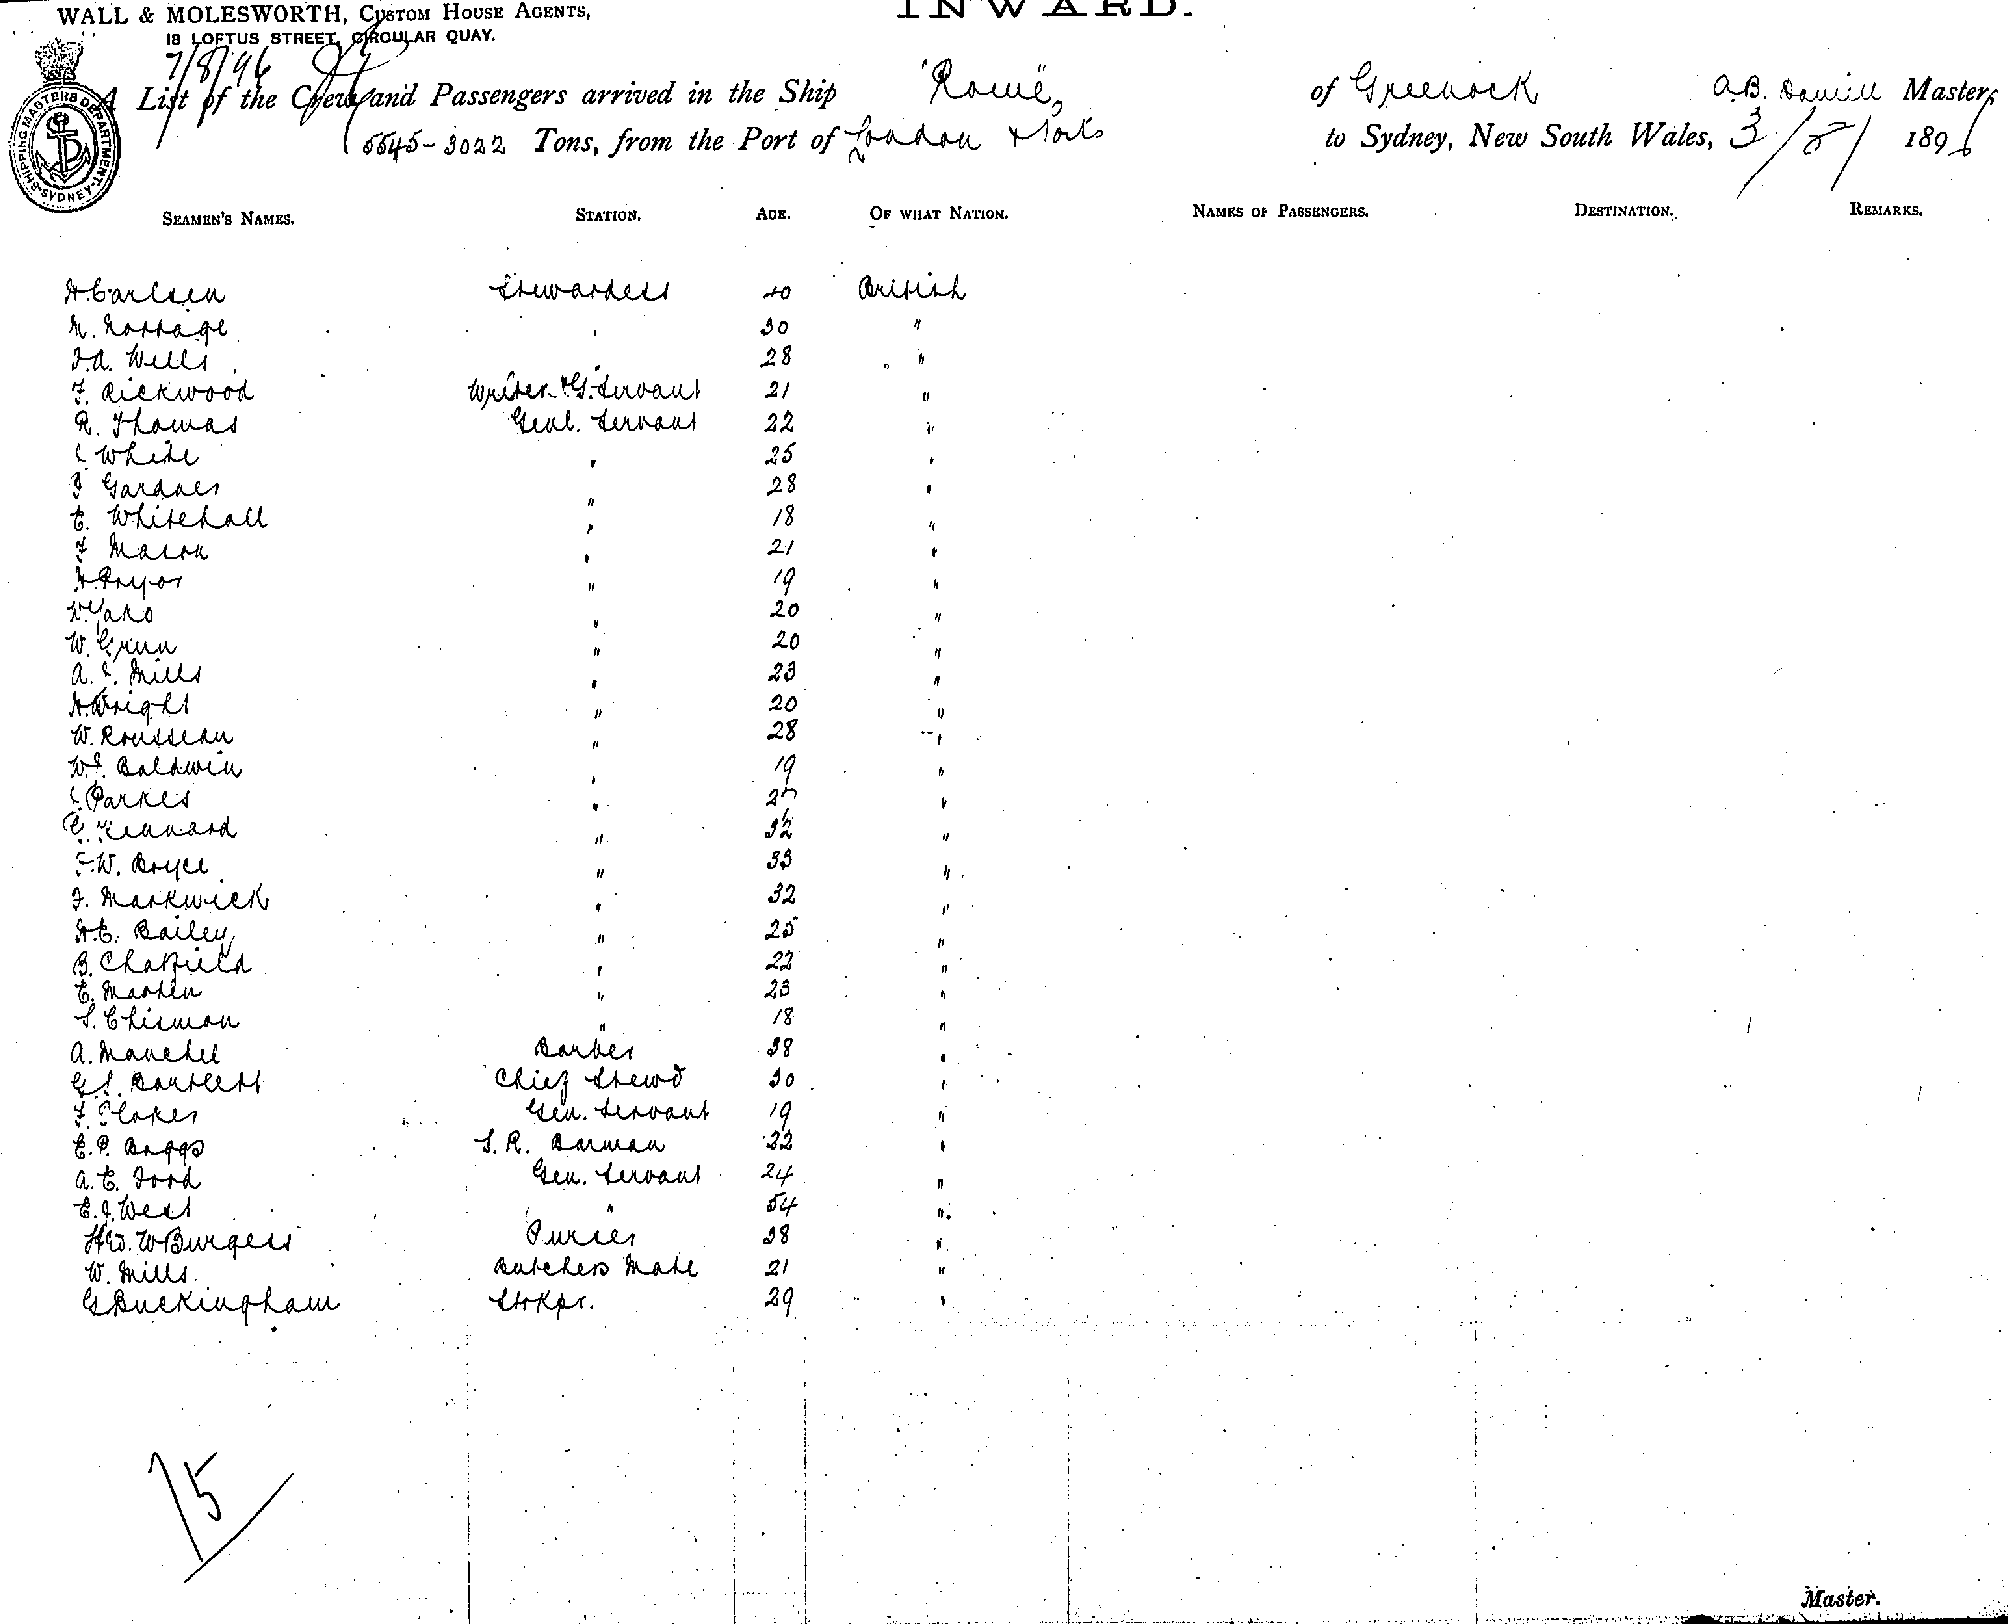 WALL & MOLESWORTH, CUSTOM HOUSE AGENTS,
18 LOFTUS STREET, CIRCULAR QUAY.
INWARD.
7/8/96
SHIPPING MASTERS DEPARTMENT SYDNEY
A List of the Crew and Passengers arrived in the Ship "Rome", of Greenock A.B. Daniell Master,
5545-3022 Tons, from the Port of London & Ports to Sydney, New South Wales, 3/8/ 1896
SEAMEN'S NAMES. STATION. AGE. OF WHAT NATION. NAMES OF PASSENGERS. DESTINATION. REMARKS.
H. Carlsen Stewardess 40 British
M. Norrage " 30 "
28 "
F. Rickwood Writer & G. Servant 21 "
R. Thomas Genl. Servant 22 "
White " 25 "
Gardner " 28 "
E. Whitehall " 18 "
F Mason " 21 "
H Pryor " 19 "
" 20 "
W. Green " 20 "
A. J. Mills " 23 "
H. Wright " 20 "
W. Rousseau " 28 "
W J. Baldwin " 19 "
Parkes " "
C. Kennard " 32 "
F. W. Boyce " 33 "
J. Markwick " 32 "
H.E. Bailey " 25 "
B. Chatfield " 22 "
E. Martin " 23 "
S. Chisman " 18 "
A. Manchee Barber 38 "
G S. Bartlett Chief Stewd 30 "
F. Gen. Servant 19 "
E. P. Baggs S. R. Barman 22 "
A. E. Ford Gen. Servant 24 "
E. J. West " 54 "
W Burgess Purser 38 "
W. Mills Butchers Mate 21 "
G Buckingham Strkpr. 29 "
75
Master.